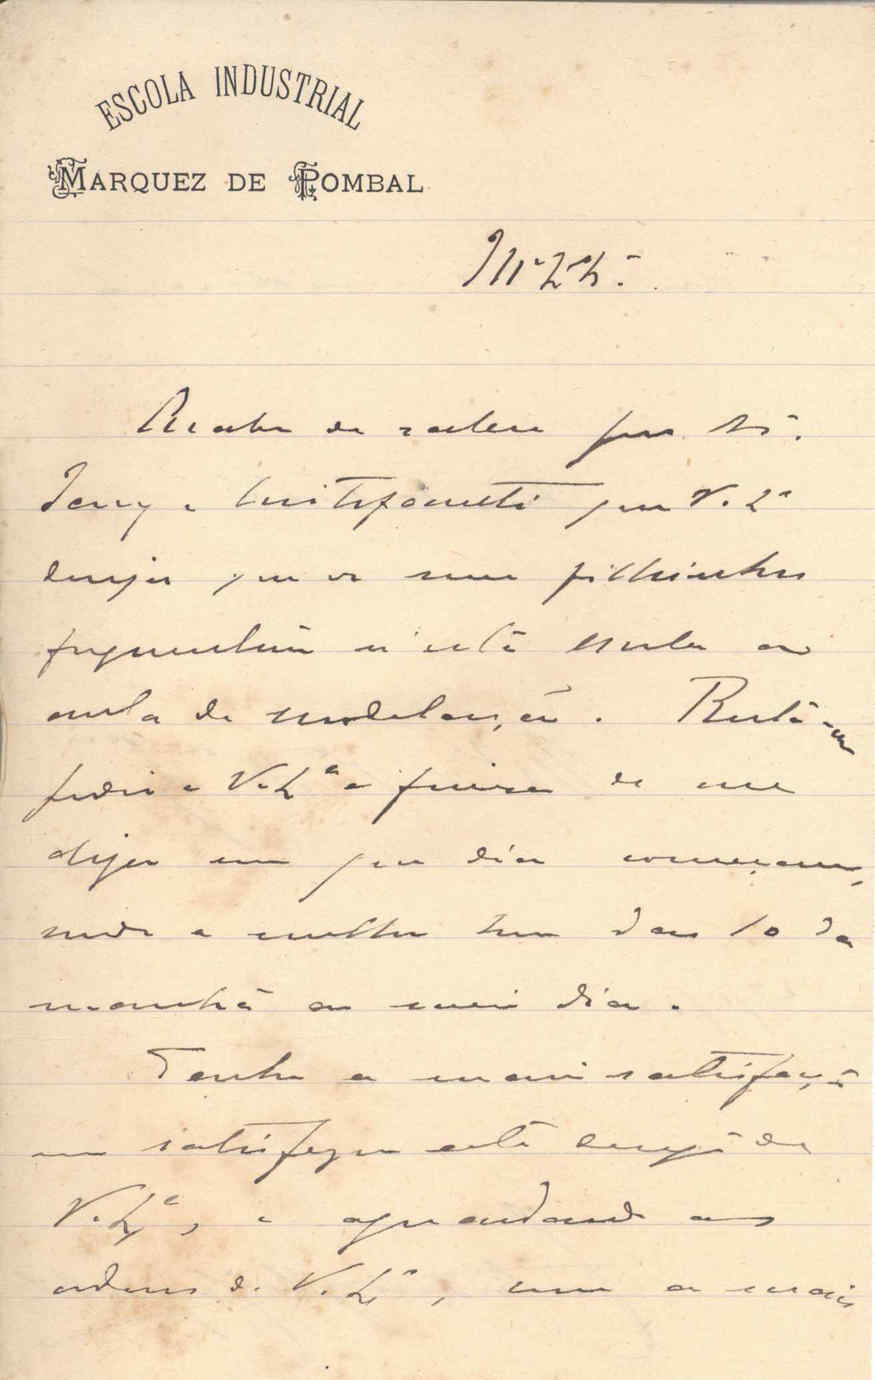 ESCOLA INDUSTRIAL
MARQUEZ DE POMBAL
Acabo de saber por
que V. Ex.ª
deseja que os seus filhinhos
frequentem n'esta escola a
aula de modelação. Resta-me
pedir a V. Ex.ª a fineza de me
dizer em que dia começam,
sendo a melhor hora das 10 da
manhã ao meio dia.
Tenho a maior satisfação
em satisfazer este desejo de
V. Ex.ª, e aguardando as
ordens de V. Ex.ª, com a mais